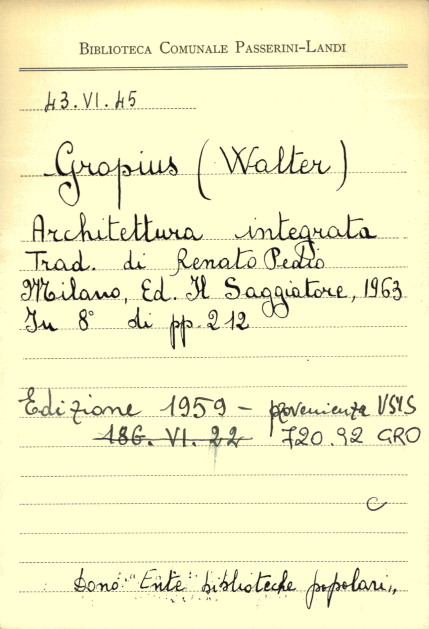 BIBLIOTECA COMUNALE PASSERINI-LANDI
43.VI.45
Gropius (Walter)
Architettura integrata
Trad. di Renato Pedio
Milano, Ed. Il Saggiatore, 1963
In 8° di pp. 212
Edizione 1959 - provenienza USIS
186. VI. 22 720.92 GRO
C
Dono "Ente biblioteche popolari"